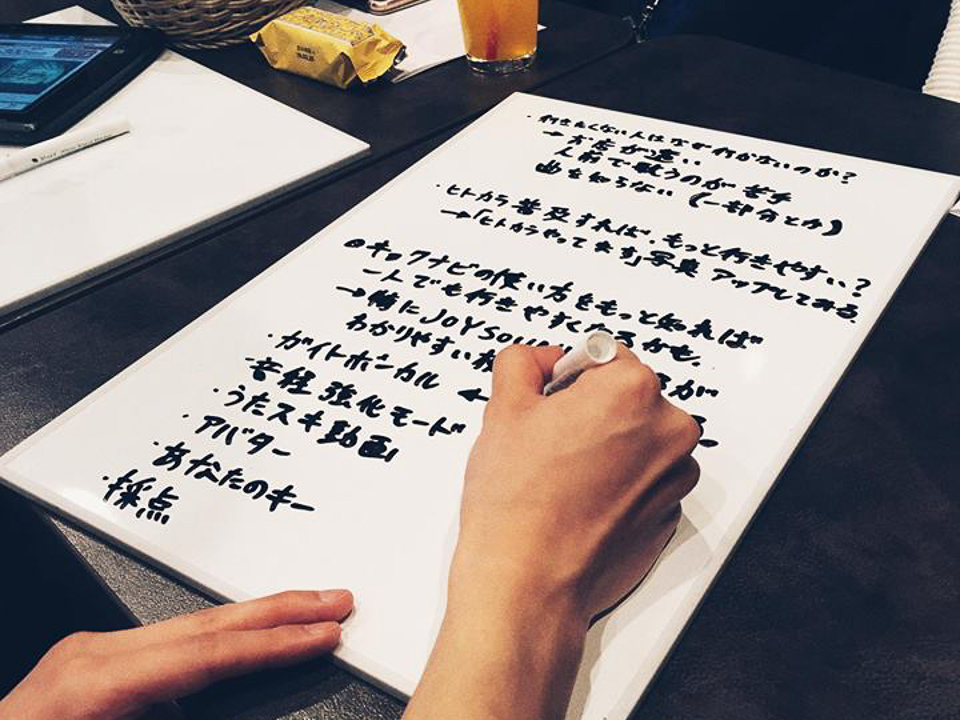 ・行きたくない人はなぜ行かないのか?
→お店が遠い
人前で歌うのが苦手
曲を知らない (一部分とか)
・ヒトカラ普及すれば、もっと行きやすい?
→「ヒトカラやってます」写真アップしてみる。
キョクナビの使い方をもっと知れば
一人でも行きやすくなるかも。
→特にJOYSOU
わかりやすい
が
・ガイドボーカル ←
音程強化モード
・うたスキ動画
・アバター
・あなたのキー
・採点